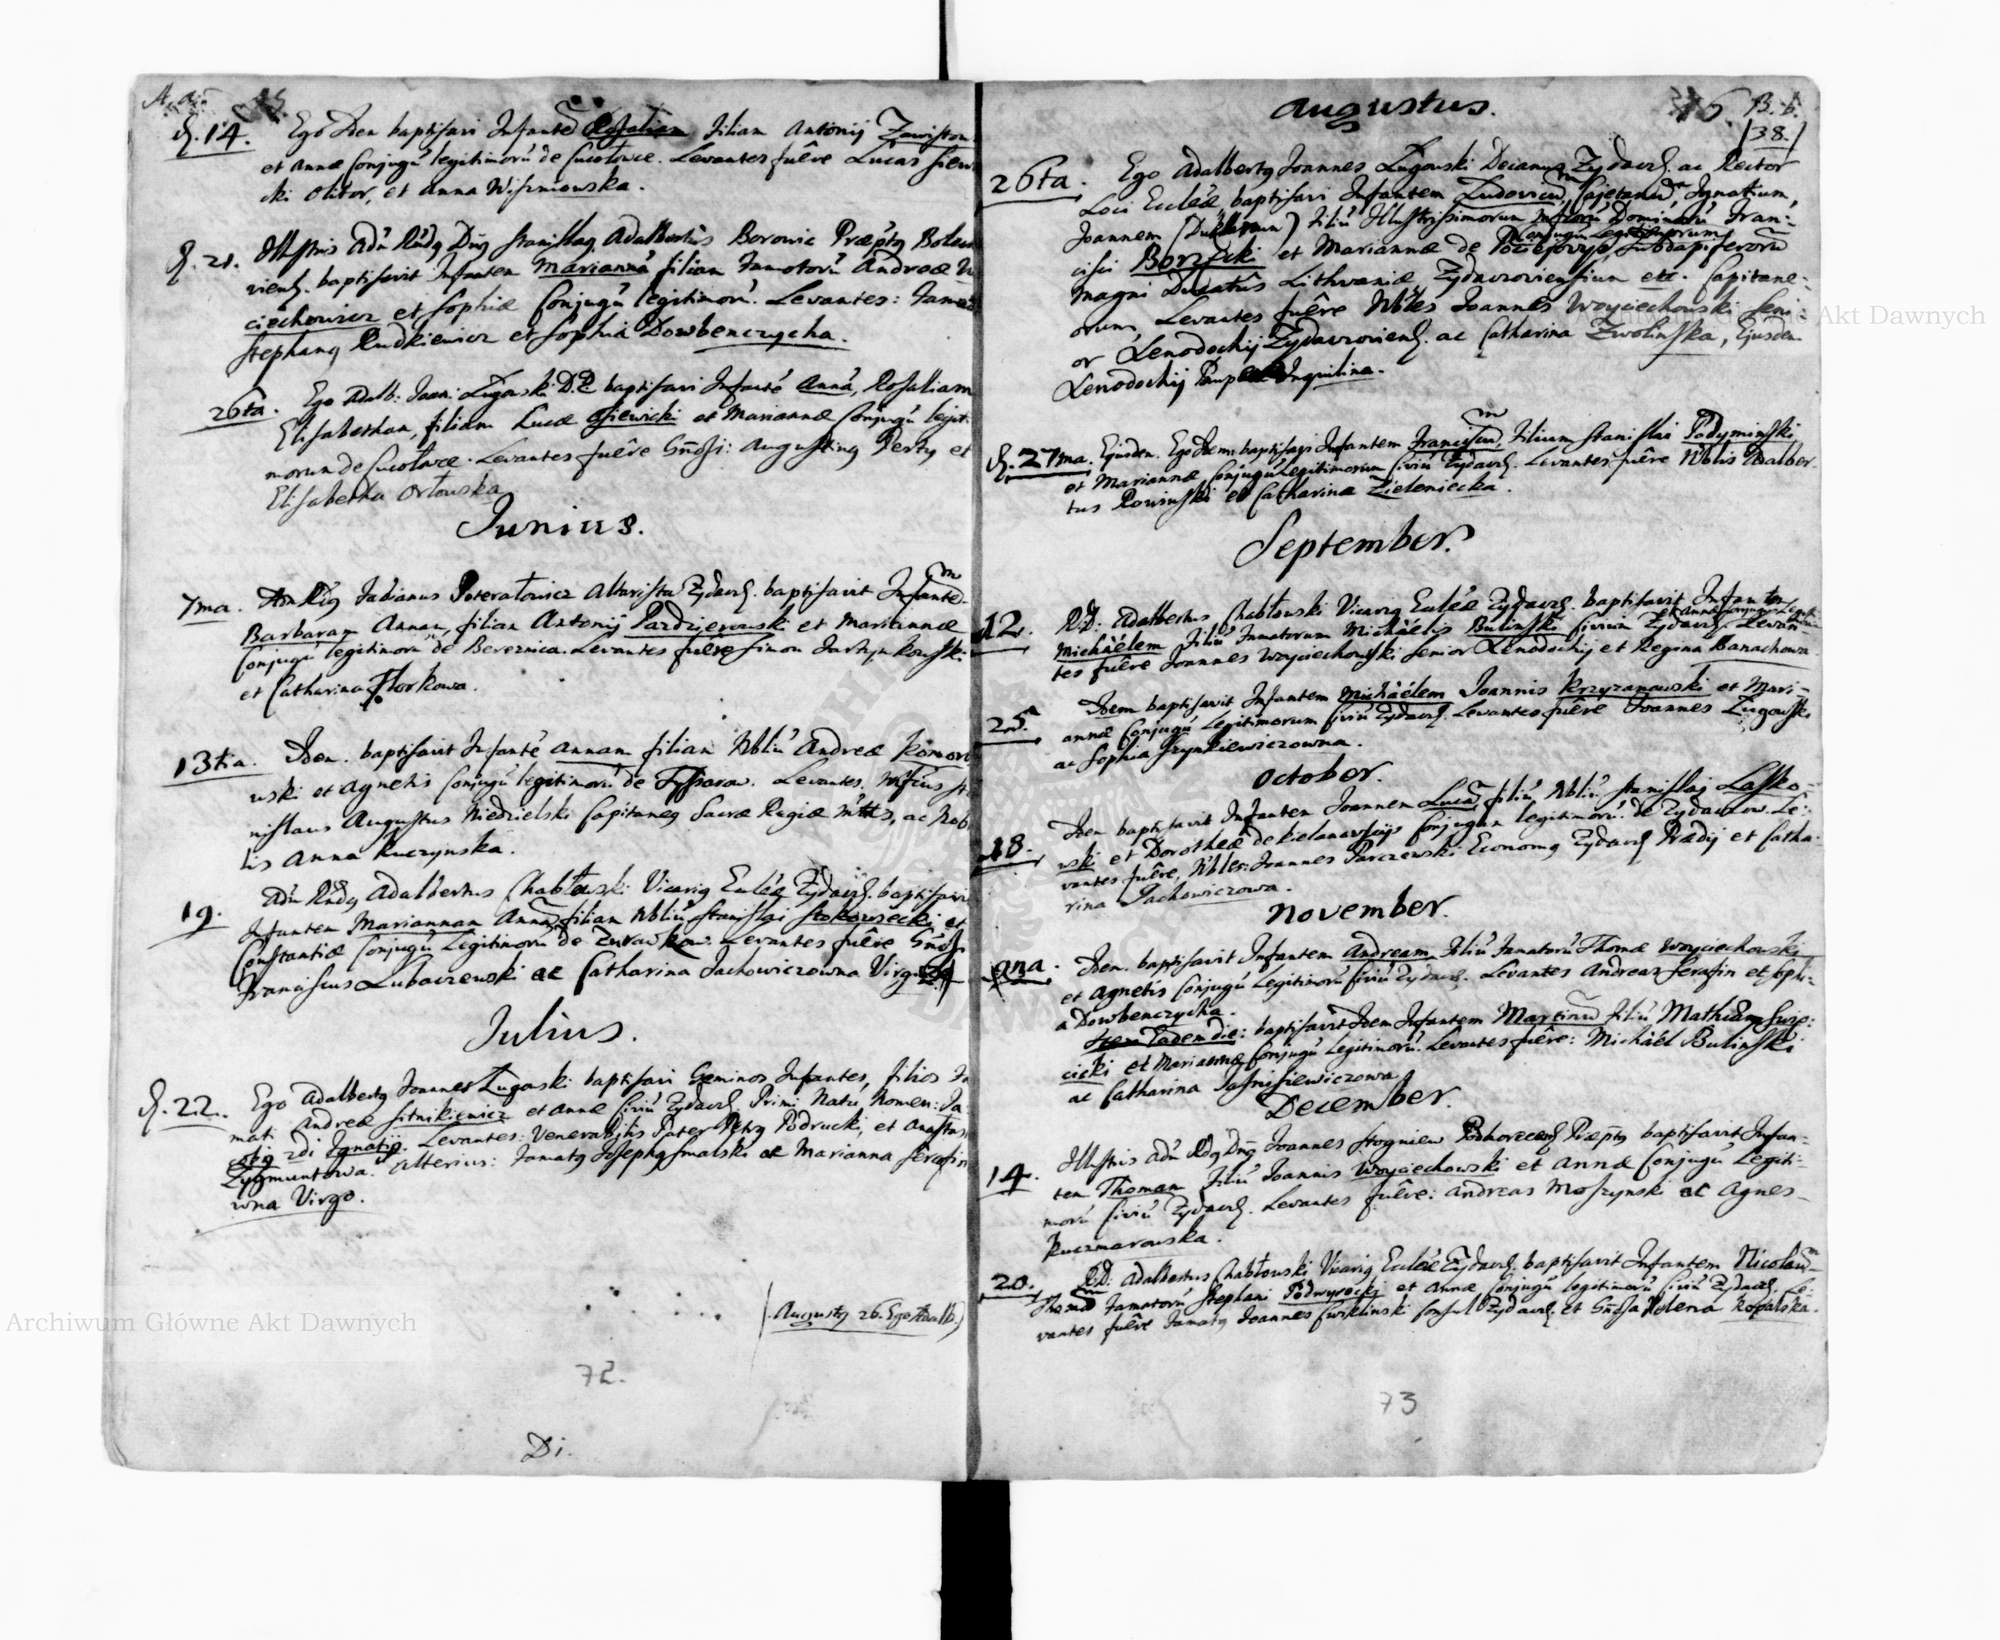 d. 14. Ego Idem baptisavi Infantē Rosaliam Filiam Antonij Zawiston
et Annæ Conjugū legitimorū de Sucolowce. Levantes fuêre Lucas
cki Olitor, et Anna Wiszniowska.
d. 21. Illustris Adm Rndg Dng Stanislag Adalbertus Borowic Præptg
viens. baptisavit Infantem Mariannā filiam Famatorū Andreæ
ciechowicz et Sophiæ Conjugū legitimorū. Levantes:
Stephang Rudkiewicz et Sophia Dowbenczycha.
26ta. Ego Adalb: Joan: Ługowski D.Z. baptisavi Infantē Annā, Rosaliam
Elisabetham, filiam Lucæ Osiewicki et Mariannæ Conjugū legit
morum de Sucołowce. Levantes fuêre Gnosi: Augusting Perty et
Elisabetha Orłowska
Junius.
7ma. Fabianus Poteratowicz Altarista Zydacz. baptisavit Infante
Barbaram Annam, filiam Antonij Pazdzierowski et Mariannæ
Conjugū legitimorū de Bereznica. Levantes fuêre Simon
et Catharina Florkowa.
13tia. Idem. baptisavit Infantē Annam filiam Nbliū Andreæ Komoro
wski et Agnetis Conjugū legitimorū de Levantes.
nislaus Augustus Niedzielski Capitaneg Sacræ Regiæ Mttis, ac Nob
lis Anna Kuczynska.
19. Adm Rndg Adalbertus Chabłowski Vicarig Eccleæ Zydacz. baptisavi
Infantem Mariannam Annā filiam Nbliū Stanislai Stokowiecki et
Constantiæ Conjugū Legitimorū de Zurawkow. Levantes fuêre
Franciscus Lubaczewski ac Catharina Jachowiczowna Virg
Julius.
d. 22. Ego Adalbertg Joannes Ługowski baptisavi Geminos Infantes, filios Fa
mati Andreæ Sitnikiewicz et Annæ Civiū Zydacz. Primi Natū Nomen: Ja
cobg 2di Ignatig. Levantes: Venerabilis Pater Petrg Podrucki, et Anastas
Zygmuntowa. Alterius: Famatg Josephg Smalski ac Marianna Serafin
wna Virgo.
/Augustg 26. Ego Adalb./
72.
Di.
Augustus.
B. b.
/38./
26ta. Ego Adalbertg Joannes Ługowski Decanus Zydacz. ac Rector
Loci Eccleæ, baptisavi Infantem Ludovicum, Cajetanū, Ignatium,
Joannem Filiū Illustrissimorum Dominorū Fran:
Conjugū Legitimorum
cisci Borzęcki et Mariannæ de Subdapiferorū
Magni Ducatûs Lithvaniæ Zydaczoviensium etc. Capitane-
orum, Levantes fuêre Nbles Joannes Woyciechowski Seni
or Xenodochij Zydaczoviens. ac Catharina Zwolinska, Ejusdem
Xenodochij Inquilina.
d. 27ma. Ejusdem. Ego Idem baptisavi Infantem Franciscum, Filium Stanislai Podyminski
et Mariannæ Conjugū Legitimorum Civiū Zydacz. Levantes fuêre Nblis Adalber
tus Rowinski et Catharina Zieleniecka.
September.
12. R.D. Adalbertus Chabłowski Vicarig Eccleæ Zydacz. baptisavit Infantem
Michäelem Filiū Famatorum Michäelis Bulinski et Annæ Conjugū Legiti Civium Zydacz. Levan
tes fuêre Joannes Woyciechowski Senior Xenodochij et Regina Banachowa.
25. Idem baptisavit Infantem Michäélem Joannis Krzyzanowski et Mari-
annæ Conjugū Legitimorum Civiū Zydacz. Levantes fuêre Joannes Ługowski
ac Sophia Hrynkiewiczowna.
October.
18. Idem baptisavit Infantem Joannem Lucā filiū Nbliū Stanislai Lasko-
wski et Dorotheæ de Kielanowskijs Conjugum legitimorū. de Zydaczow. Le:
vantes fuêre, Nbles: Joannes Parczewski Economg Zydacz Prædij et Catha
rina Jachowiczowa.
November.
9na. Idem. baptisavit Infantem Andream Filiū Famatorū Thomæ Woyciechowski
et Agnetis Conjugū Legitimorū Civiū Zydacz. Levantes Andreas Serafin et Sophi-
a Dowbenczycha.
Eademdie: baptisavit Idem Infantem Martinū filiū Mathiæ
cicki et Mariannæ Conjugū Legitimorū. Levantes fuêre: Michäél Bulinski
ac Catharina
December.
14. Illustris Adm Rdg Dng Joannes Stogniew Præptg baptisavit Infan-
tem Thomam Filiū Joannis Woyciechowski et Annæ Conjugū Legiti-
morū Civiū Zydacz. Levantes fuêre: Andreas Moszynski ac Agnes-
Kuczmarowska.
20. R.D: Adalbertus Chabłowski Vicarig Eccleæ Zydacz. baptisavit Infantem Nicolaum
Famatorū Stephani Podwysocki et Annæ Conjugū legitimorū Civiū Zydacz. Le:
vantes fuêre Famatg Joannes Cwiklinski Consul Zydacz. Et Gnosa Helena Kopalska.
73
Archiwum Główne Akt Dawnych
Archiwum Główne Akt Dawnych